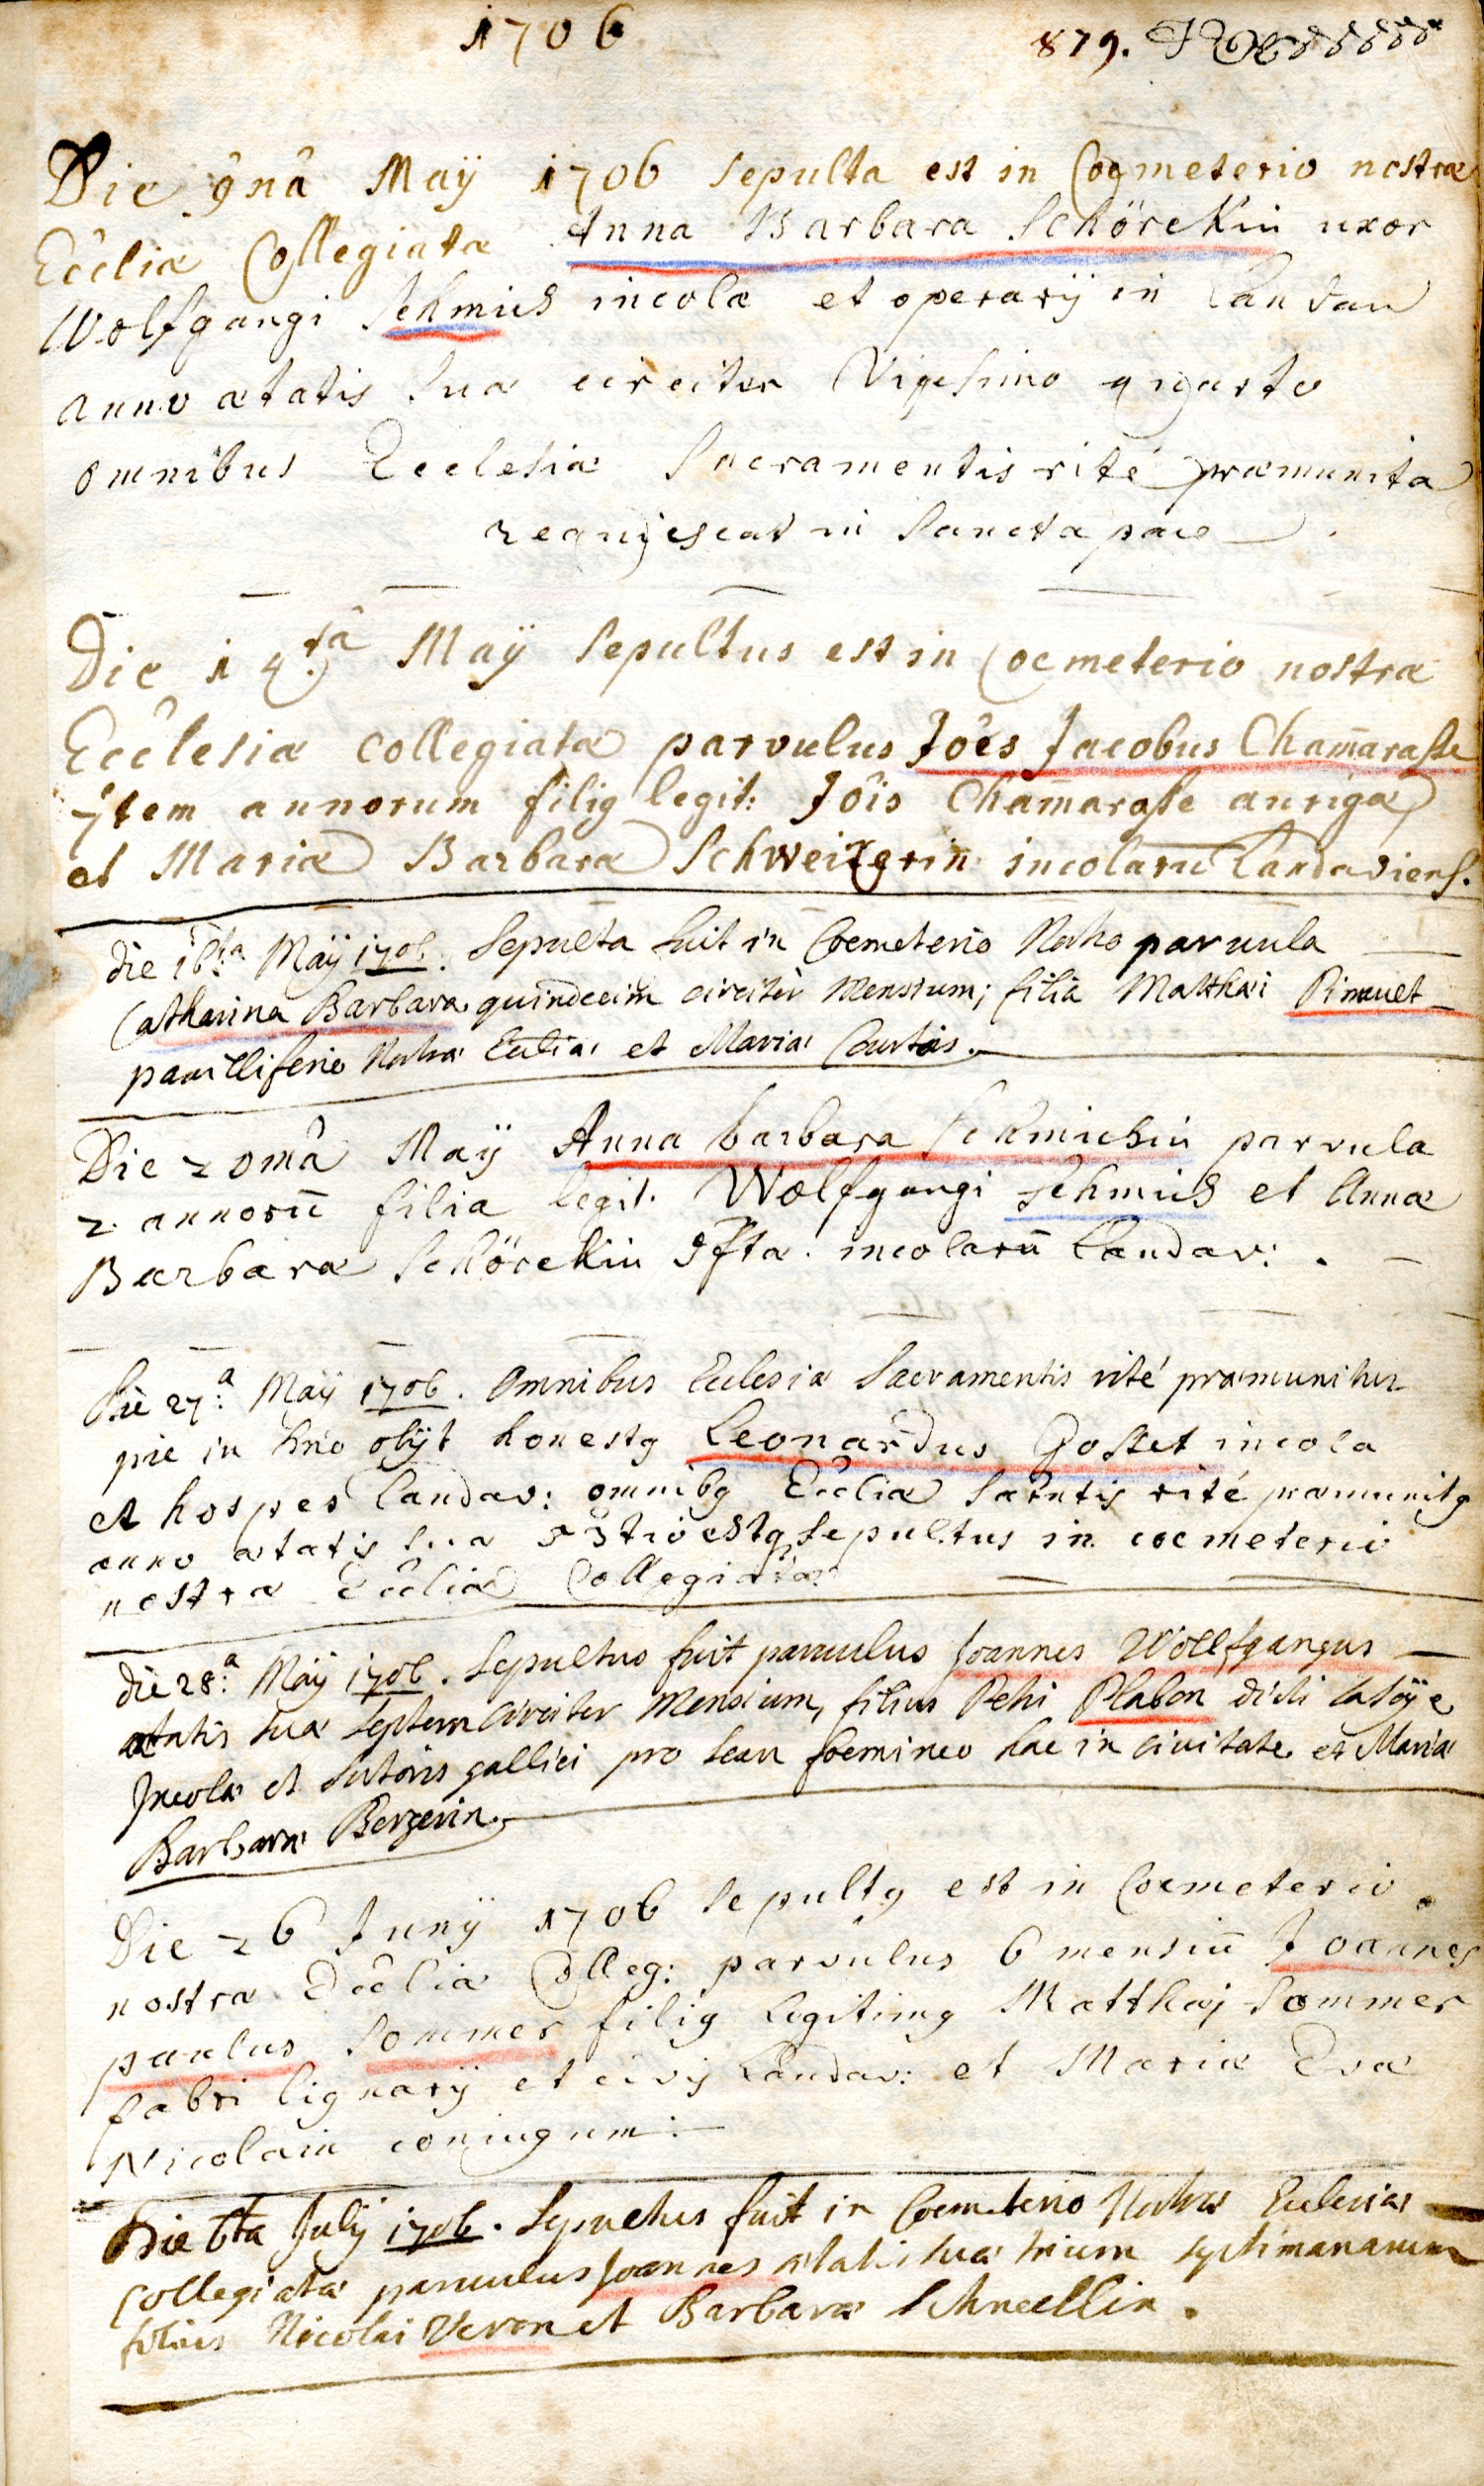 1706
879.
Die 9nâ Maÿ 1706 sepulta est in Coemeterio nostræ
Ecĉliæ Collegiatæ Anna Barbara Schöreckin uxor
Wolfgangi Schmid incolæ et operarÿ in Landau
anno ætatis suæ circiter Vigesimo quarto
omnibus Ecclesiæ Sacramentis rité præmunita
requiescat in Sancta pace
Die 14ta Maÿ Sepultus est in Coemeterio nostræ
Ecĉlesiæ collegiatæ parvulus Joês Jacobus Cham̄arasse
7tem annorum filig legit: Joîs Cham̄arasse aurigæ
et Mariæ Barbaræ Schweizerin incolarū Landaviens.
die 16ta Maÿ 1706. Sepulta fuit in Coemeterio Nostro parvula
Catharina Barbara quindecim circiter Mensium; filia Matthæi Pinmet
pavilliferio Nostræ Eccliæ et Mariæ Courtois.
Die 20mâ Maÿ Anna barbara Schmidin parvula
2. annorū filia legit. Wolfgangi Schmid et Annæ
Barbaræ Schöreckin dfta. incolarū Landav:.
Die 27:a Maÿ 1706. Omnibus Ecclesiæ Sacramentis rité præmunitur
pie in Dn̄o obÿt honestg Leonardus Gosset incola
et hospes Landav: omnibg Ecĉliæ Sacrntis rité præmunitg
anno ætatis suæ 53tio estq sepultus in coemeterio
nostræ Ecĉliæ Collegiatæ
die 28:a Maÿ 1706. Sepultus fuit parvulus Joannes Wolffgangus
ætatis suæ septem circiter Mensium, filius Petri Plabon dicti laJoÿe
Incolæ et sutoris gallici pro sexu foemineo hac in civitate et Mariæ
Barbaræ Bergerin.
Die 26 Junÿ 1706 sepultg est in Coemeterio
nostræ Ecĉliæ Colleg: parvulus 6 mensiū Joannes
paulus Sommer filig legitimg Matthæj Sommer
fabri lignarÿ et civis Landav: et Mariæ Evæ
Nicolain coniugum:
Die 6ta Julÿ 1706. Sepultus fuit in Coemeterio Nostræ Ecclesiæ
Collegiatæ parvulus Joannes ætatis suæ trium septimanarum
filius Nicolai Veron et Barbaræ Schnellin.